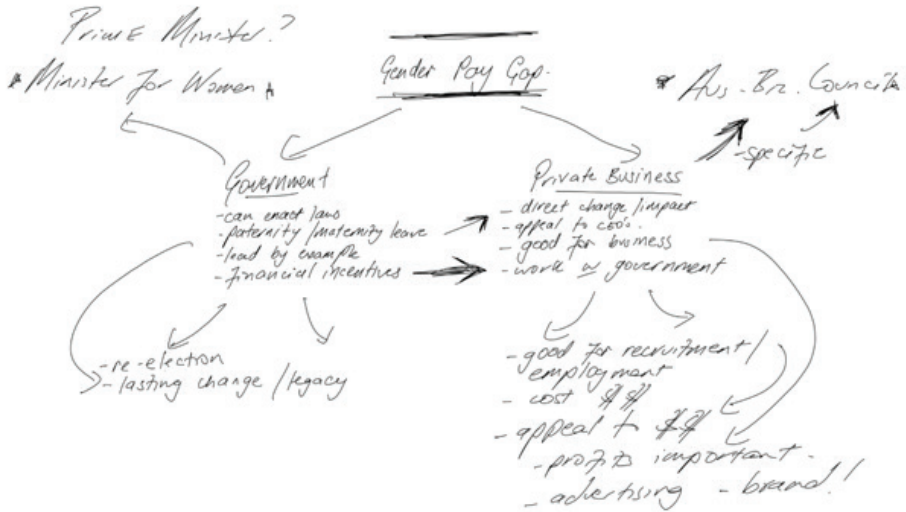 Prime Minister?
* Minister for Women *
Gender Pay Gap.
* Aus. Biz. Council *
- specific
Government
- can enact laws
- paternity / maternity leave
- lead by example
- Financial incentives
Private Business
- direct change / impact
- appeal to CEO's.
- good for business
- work w government
- re-election
- lasting change / legacy
- good for recruitment /
employment
- cost $$
- appeal to $$
- profits important.
- advertising - brand!